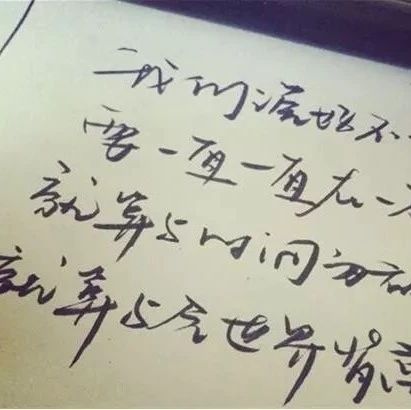 我们说好不
要一直一直在一
就算与时间为
就算与全世界背